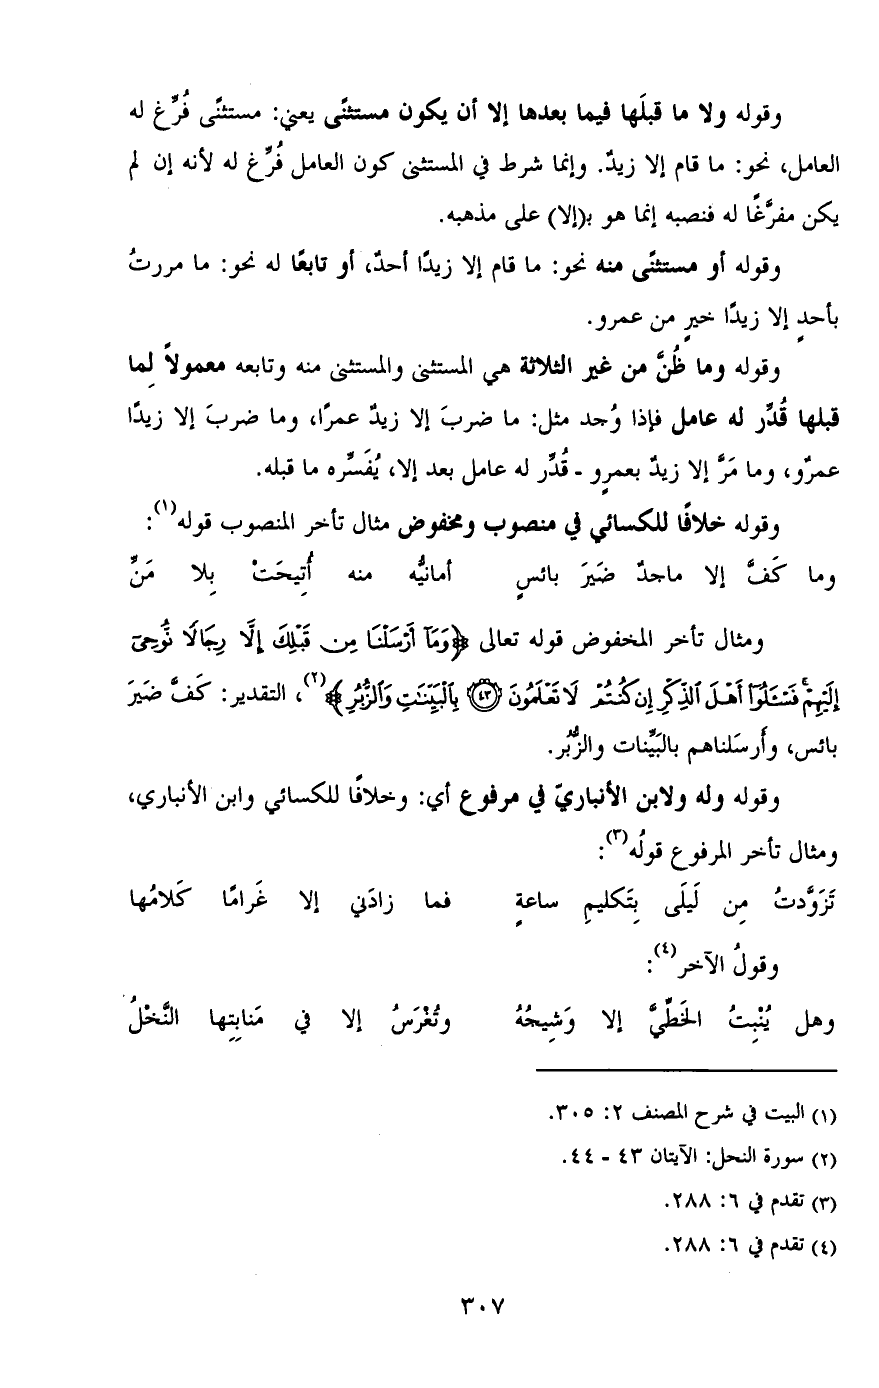 وقوله ولا ما قبلَها فيما بعدها إلا أن يكون مستثنًى يعني: مستثنًى فُرِّغ له
العامل، نحو: ما قام إلا زيدٌ. وإنما شرط في المستثنى كون العامل فُرِّغ له لأنه إن لم
يكن مفرَّغًا له فنصبه إنما هو بـ(إلا) على مذهبه.
وقوله أو مستثنًى منه نحو: ما قام إلا زيدًا أحدٌ، أو تابعًا له نحو: ما مررتُ
بأحدٍ إلا زيدًا خيرٍ من عمرو.
وقوله وما ظُنَّ من غير الثلاثة هي المستثنى والمستثنى منه وتابعه معمولاً لِما
قبلها قُدِّر له عامل فإذا وُحد مثل: ما ضربَ إلا زيدٌ عمرًا، وما ضربَ إلا زيدًا
عمرٌو، وما مَرَّ إلا زيدٌ بعمرٍو - قُدِّر له عامل بعد إلا، يُفَسِّره ما قبله.
وقوله خلافًا للكسائي في منصوب ومخفوض مثال تأخر المنصوب قوله(١):
وما كَفَّ إلا ماجدٌ ضَيَرَ بائسٍ أمانيُّه منه أُتِيحَتْ بِلا مَنِّ
ومثال تأخر المخفوض قوله تعالى ﴿وَمَآ أَرْسَلْنَا مِن قَبْلِكَ إِلَّا رِجَالًا نُّوحِىٓ
إِلَيْهِمْ ۚ فَسْـَٔلُوٓا۟ أَهْلَ ٱلذِّكْرِ إِن كُنتُمْ لَا تَعْلَمُونَ ۝٤٣ بِٱلْبَيِّنَٰتِ وَٱلزُّبُرِ﴾(٢)، التقدير: كَفَّ ضَيَرَ
بائس، وأَرسَلناهم بالبَيِّنات والزُّبُر.
وقوله وله ولابن الأنباريّ في مرفوع أي: وخلافًا للكسائي وابن الأنباري،
ومثال تأخر المرفوع قولُه(٣):
تَزَوَّدتُ مِن لَيلَى بِتَكليمِ ساعةٍ فما زادَني إلا غَرامًا كَلامُها
وقولُ الآخر(٤):
وهل يُنْبِتُ الخَطِّيَّ إلا وَشِيجُهُ وتُغْرَسُ إلا في مَنابِتِها النَّخْلُ
(١) البيت في شرح المصنف ٢: ٣٠٥.
(٢) سورة النحل: الآيتان ٤٣ - ٤٤.
(٣) تقدم في ٦: ٢٨٨.
(٤) تقدم في ٦: ٢٨٨.
٣٠٧